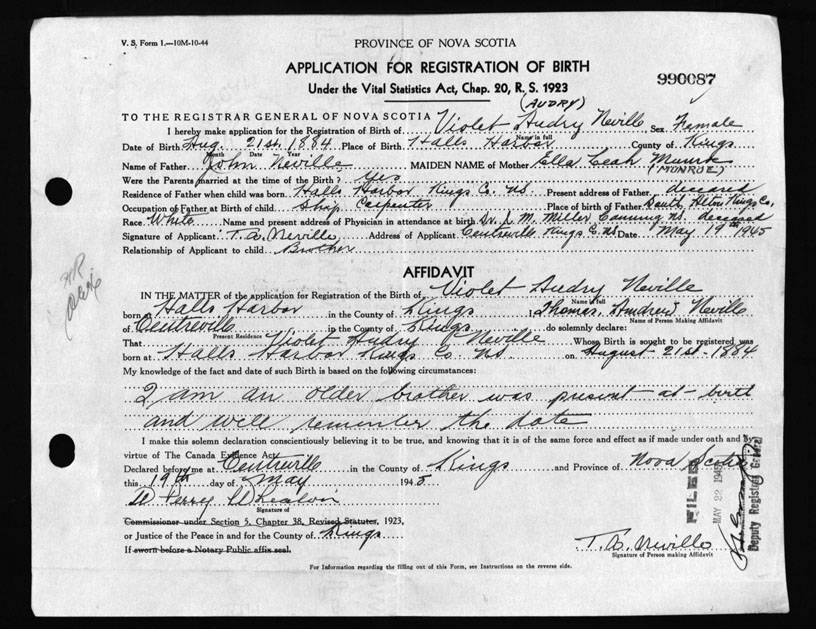 V. S. Form 1.—10M-10-44
PROVINCE OF NOVA SCOTIA
APPLICATION FOR REGISTRATION OF BIRTH
990087
Under the Vital Statistics Act, Chap. 20, R. S. 1923
(AUDRY)
TO THE REGISTRAR GENERAL OF NOVA SCOTIA
I hereby make application for the Registration of Birth of Violet Audry Neville, Sex Female
Name in full
Date of Birth Aug. 21st, 1884 Place of Birth Halls Harbor County of Kings
Month Date Year
Name of Father John Neville MAIDEN NAME of Mother Ella Leah Munroe
(MONROE)
Were the Parents married at the time of the Birth? yes
Residence of Father when child was born Halls Harbor Kings Co. NS. Present address of Father deceased
Occupation of Father at Birth of child Ship Carpenter Place of birth of Father South Alton Kings Co.
Race White Name and present address of Physician in attendance at birth Dr. M. Miller Canning NS. deceased
Signature of Applicant T. A. Neville Address of Applicant Centreville Kings Co. NS Date May 19th 1945
Relationship of Applicant to child Brother
AFFIDAVIT
IN THE MATTER of the application for Registration of the Birth of Violet Audry Neville
Name in full
born at Halls Harbor in the County of Kings I, Thomas Andrew Neville
Name of Person Making Affidavit
of Centreville in the County of Kings do solemnly declare:
Present Residence
That Violet Audry Neville Whose Birth is sought to be registered was
born at Halls Harbor Kings Co. NS. on August 21st - 1884
My knowledge of the fact and date of such Birth is based on the following circumstances:
I am an older brother was present at birth
and well remember the date
I make this solemn declaration conscientiously believing it to be true, and knowing that it is of the same force and effect as if made under oath and by
virtue of The Canada Evidence Act.
Declared before me at Centreville in the County of Kings and Province of Nova Scotia
this 19th day of May 1945
W Perry
Signature of
Commissioner under Section 5, Chapter 38, Revised Statutes, 1923,
or Justice of the Peace in and for the County of Kings
If sworn before a Notary Public affix seal.
T. A. Neville
Signature of Person making Affidavit
FILED
MAY 22 1945
Deputy Registrar General
For Information regarding the filling out of this Form, see Instructions on the reverse side.